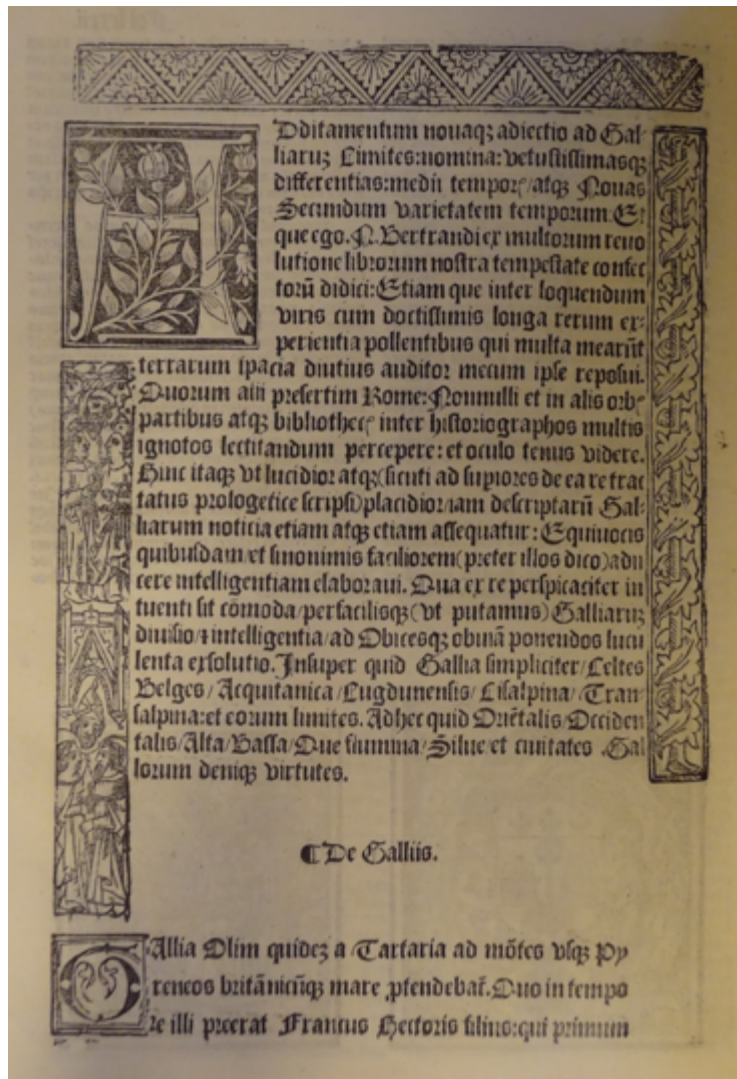 ADditamentum nouaqꝫ adiectio ad Gal-
liaruꝫ Limites:nomina:vetustissimasqꝫ
differentias:medii temporꝭ/atqꝫ Nouas
Secundum varietatem temporum Et
que ego. N. Bertrandi ex multorum reuo
lutione librorum nostra tempestate confec
torū didici:Etiam que inter loquendum
viris cum doctissimis longa rerum ex-
perientia pollentibus qui multa mearūt
terrarum spacia diutius auditor mecum ipse reposui.
Quorum alii presertim Rome:Nonnulli et in alis orbꝭ
partibus atqꝫ bibliothecꝭ inter historiographos multis
ignotos lectitandum percepere:et oculo tenus videre.
Huic itaqꝫ vt lucidior atqꝫ(sicuti ad supiores de ea re trac
tatus prologetice scripsi)placidior/iam descriptarū Gal-
liarum noticia etiam atqꝫ etiam assequatur:Equiuocis
quibusdam/et sinonimis faciliorem(preter illos dico)adu
cere intelligentiam elaboraui. Qua ex re perspicaciter in
tuenti sit cōmoda/perfacilisqꝫ(vt putamus)Galliaruꝫ
diuisio/⁊ intelligentia/ad Obicesqꝫ obinā ponendos lucu
lenta exsolutio. Insuper quid Gallia simpliciter/Celtes
Belges/Acquitanica/Lugdunensis/Cisalpina/Tran-
salpina:et eorum limites. Adhec quid Oriētalis/Occiden
talis/Alta/Bassa/Que flumina/Silue et ciuitates .Gal
lorum deniqꝫ virtutes.
¶De Galliis.
GAllia Olim quideꝫ a Tartaria ad mōtes vsqꝫ Py
reneos britānicūqꝫ mare ꝓtendebat̄. Quo in tempo
re illi preerat Francus Hectoris filius:qui primum